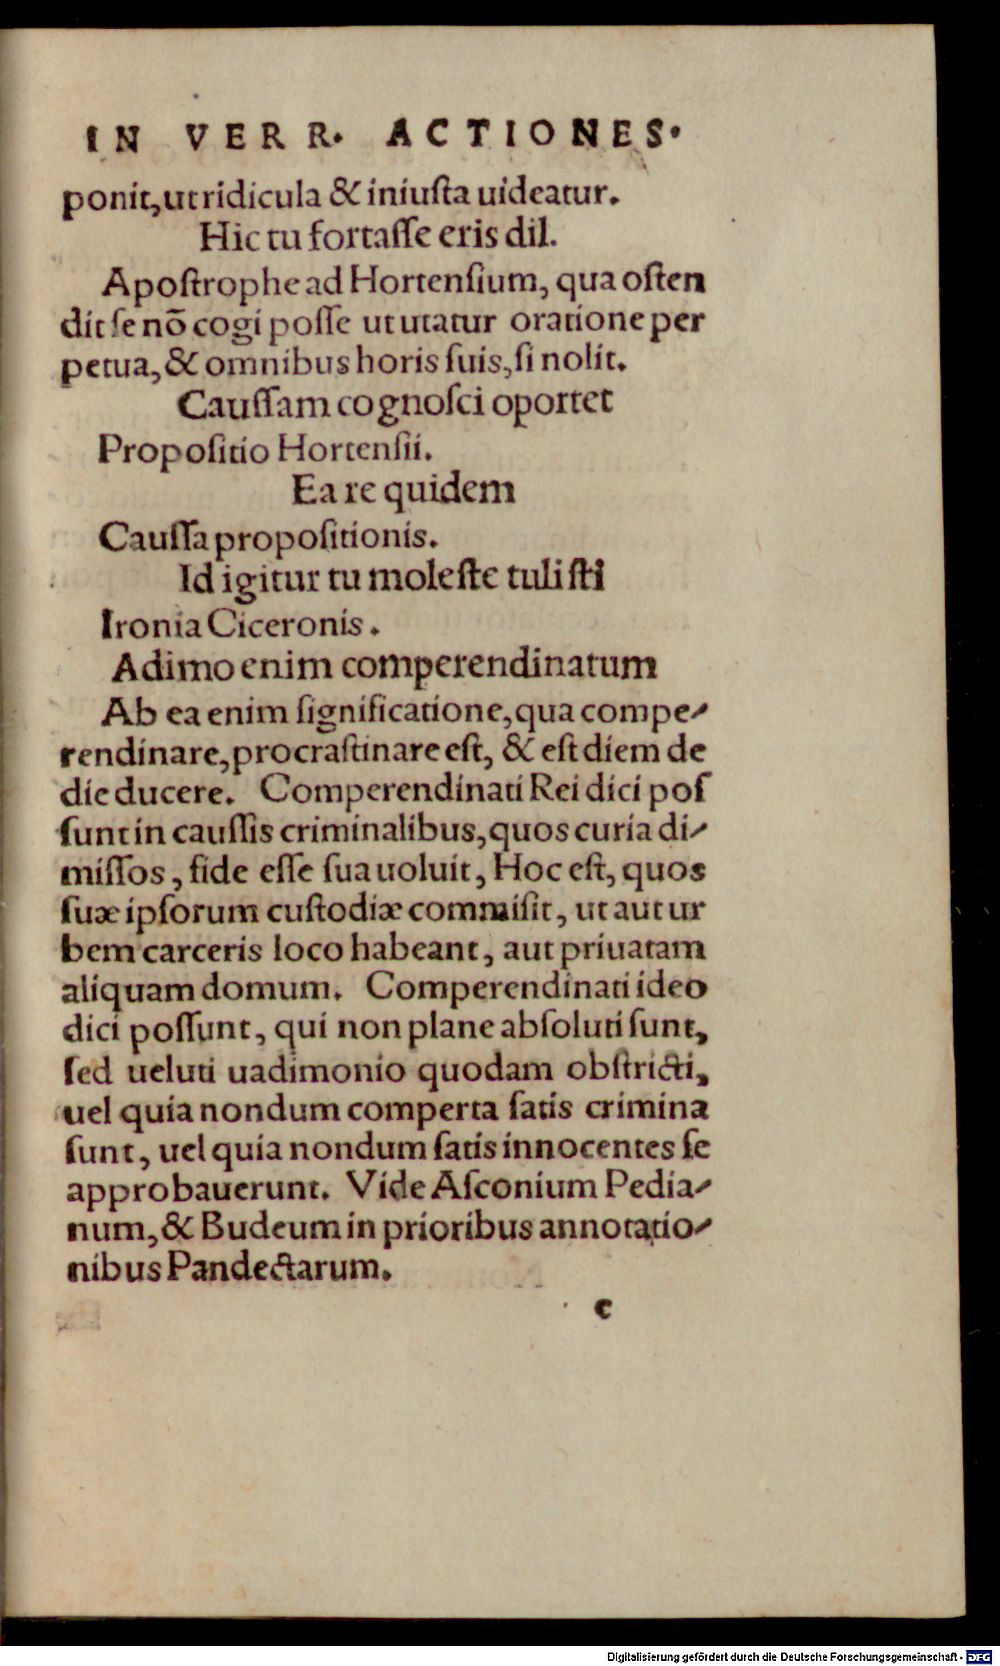 IN VERR. ACTIONES.
ponit, ut ridicula & iniuſta uideatur.
Hic tu fortaſſe eris dil.
Apoſtrophe ad Hortenſium, qua oſten
dit ſe nõ cogi poſſe ut utatur oratione per
petua, & omnibus horis ſuis, ſi nolit.
Cauſſam cognoſci oportet
Propoſitio Hortenſii.
Ea re quidem
Cauſſa propoſitionis.
Id igitur tu moleſte tuliſti
Ironia Ciceronis.
Adimo enim comperendinatum
Ab ea enim ſignificatione, qua compe-
rendinare, procraſtinare eſt, & eſt diem de
die ducere. Comperendinati Rei dici poſ
ſunt in cauſſis criminalibus, quos curia di-
miſſos, fide eſſe ſua uoluit, Hoc eſt, quos
ſuæ ipſorum cuſtodiæ commiſit, ut aut ur
bem carceris loco habeant, aut priuatam
aliquam domum. Comperendinati ideo
dici poſſunt, qui non plane abſoluti ſunt,
ſed ueluti uadimonio quodam obſtricti,
uel quia nondum comperta ſatis crimina
ſunt, uel quia nondum ſatis innocentes ſe
approbauerunt. Vide Aſconium Pedia-
num, & Budeum in prioribus annotatio-
nibus Pandectarum.
c
Digitalisierung gefördert durch die Deutsche Forschungsgemeinschaft - DFG